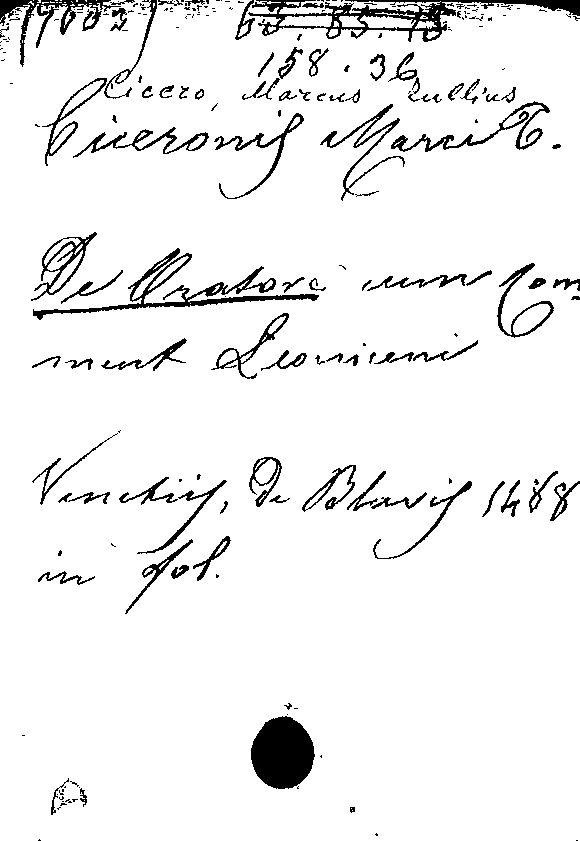 (7002)
158.36
Cicero, Marcus Tullius
Ciceronis Marci T.
De Oratore cum Com
ment Leoniceni
Venetiis, de Blavis 1488
in fol.